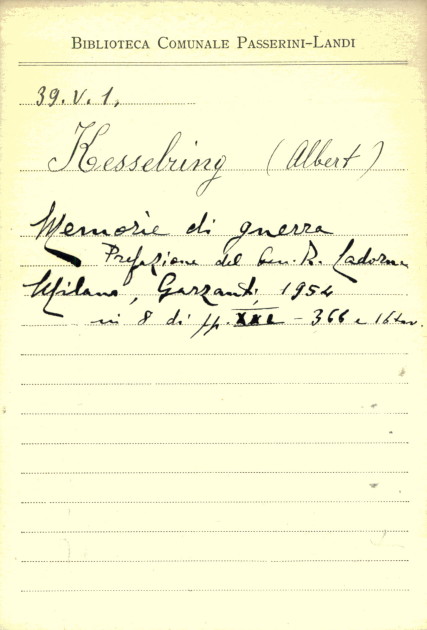 BIBLIOTECA COMUNALE PASSERINI-LANDI
39.V.1,
Kesselring (Albert)
Memorie di guerra
Prefazione del Gen. R. Cadorna
Milano, Garzanti, 1954
in 8 di pp. - 366 e 16 tav.